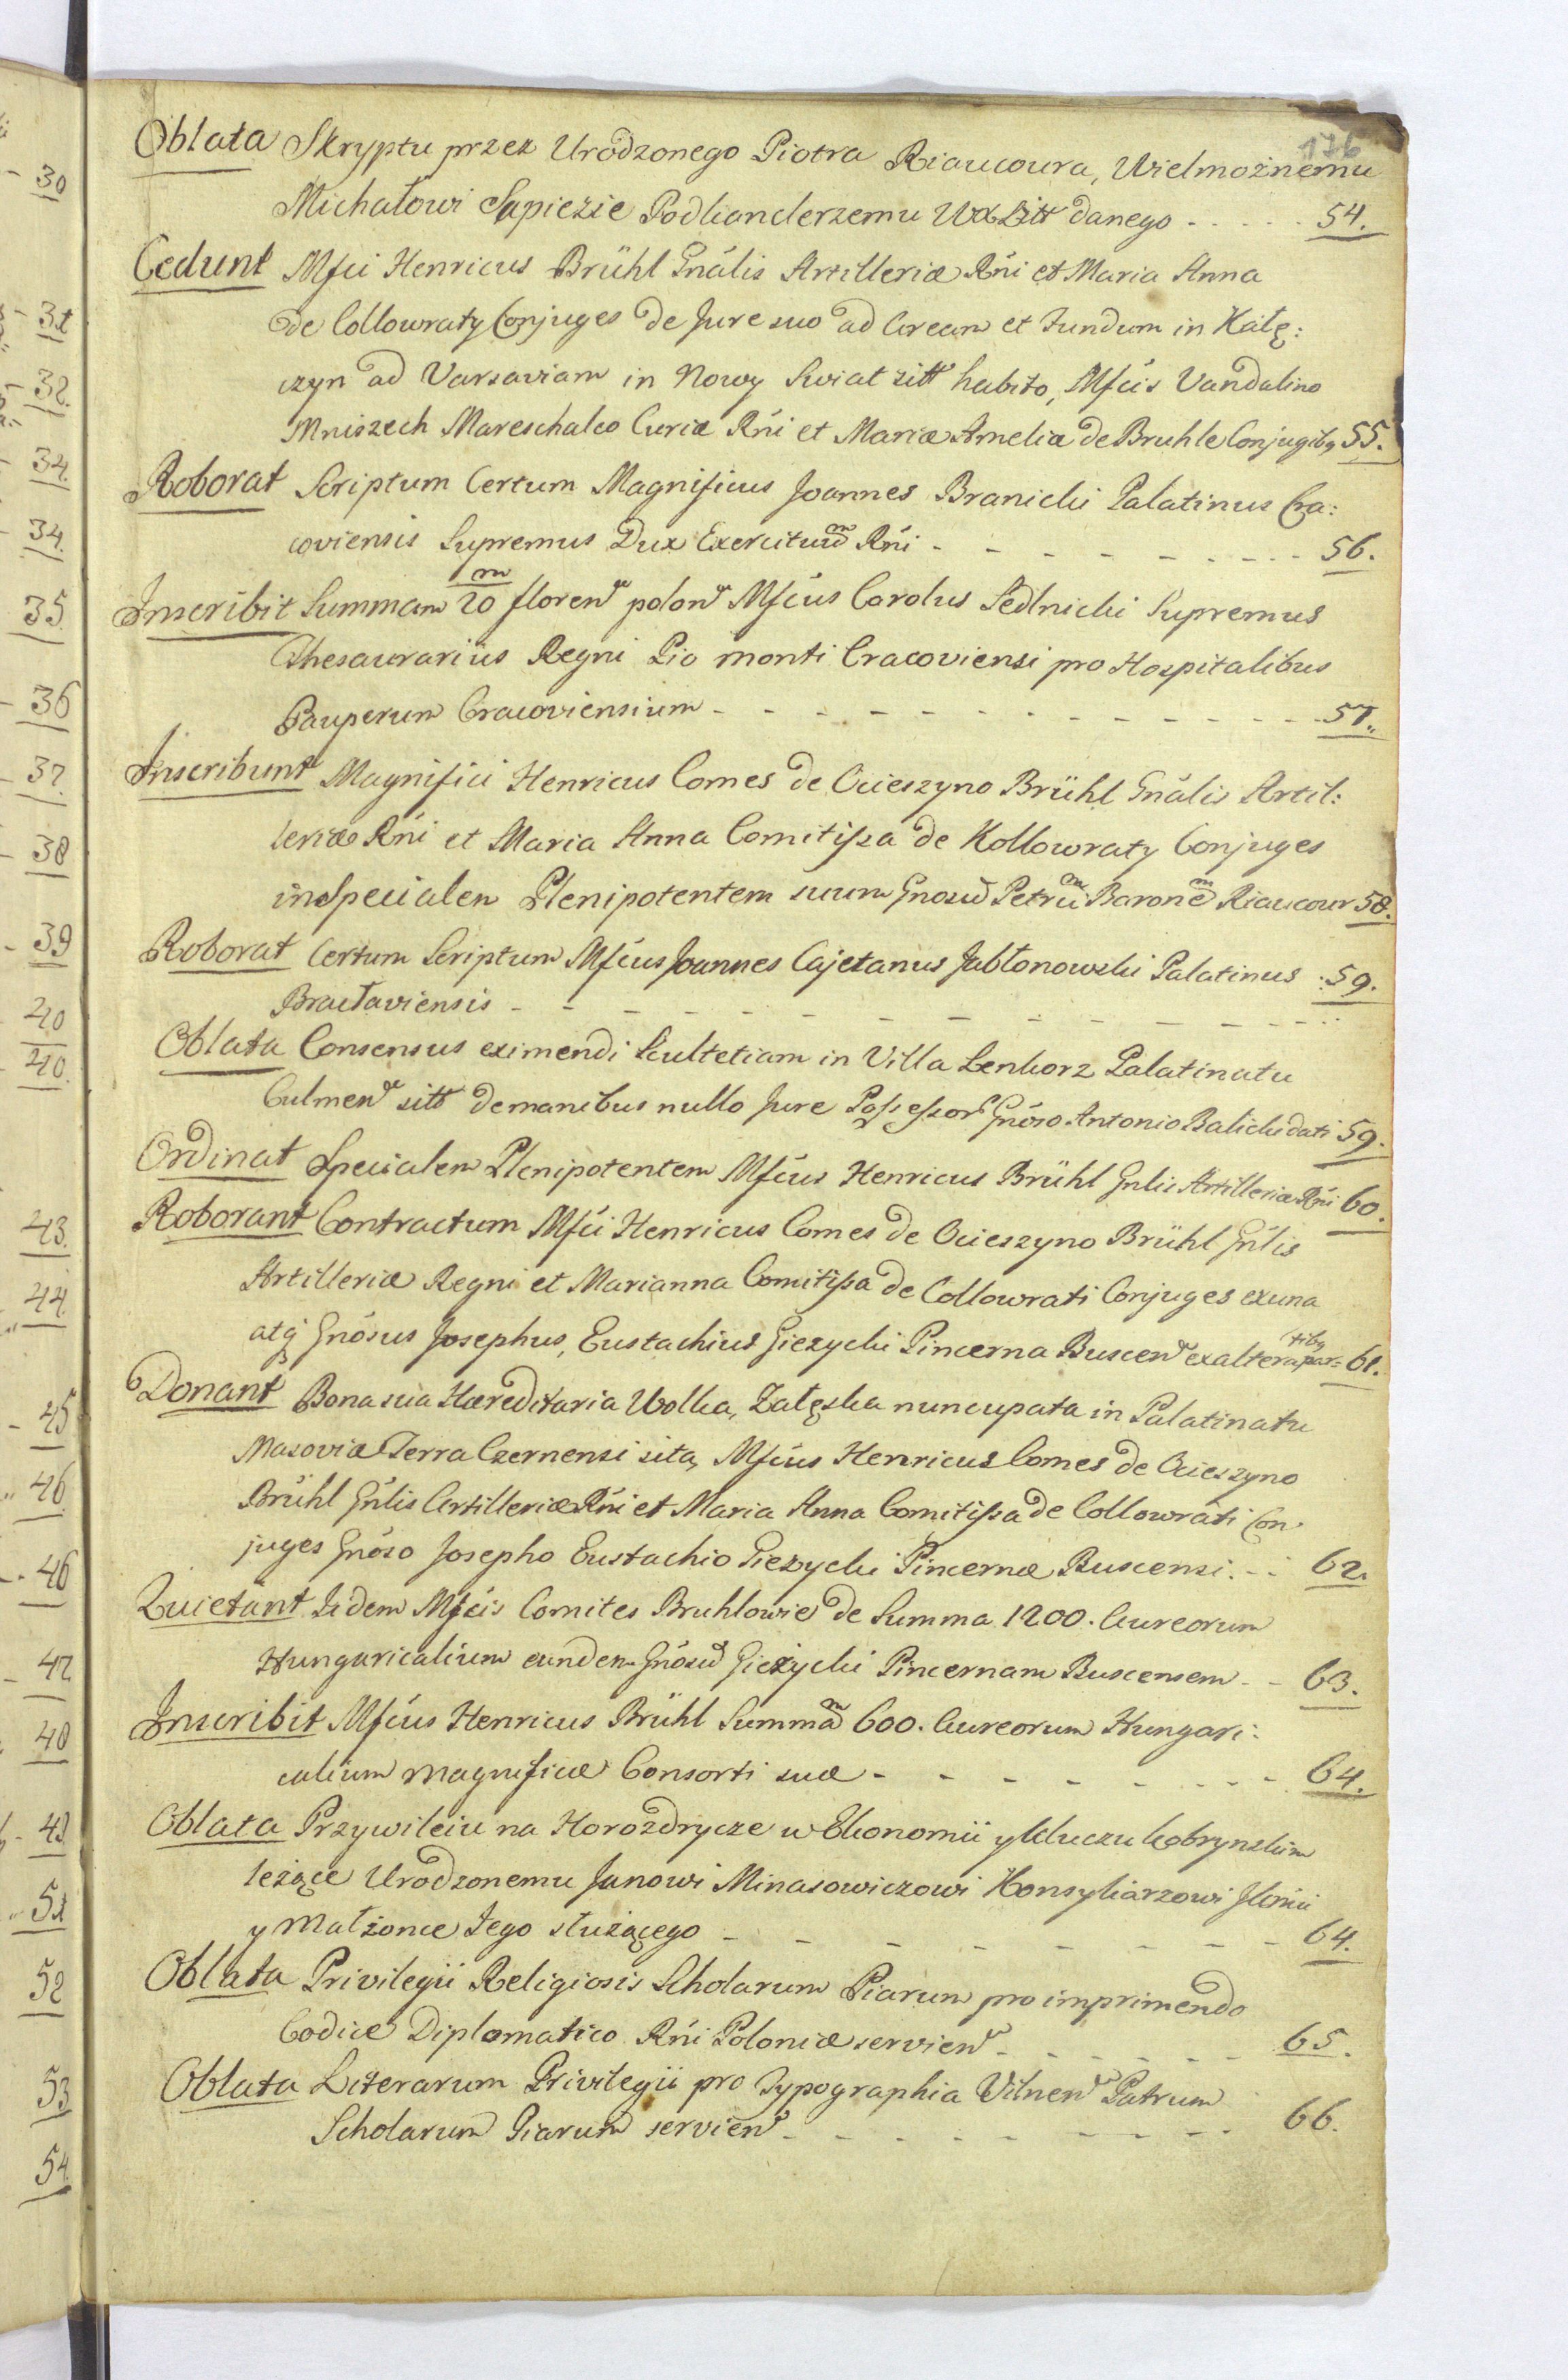 176
Oblata Skryptu przez Urodzonego Piotra Riaucoura, Wielmożnemu
Michałowi Sapiezie Podkanclerzemu WXLitt danego - - - - - 54.
Cedunt Mfci Henricus Brühl Gnális Artilleriæ Rńi et Maria Anna
de Collowraty Conjuges de Jure suo ad Aream et Fundum in Kałę:
czyn ad Varsaviam in Nowy Swiat sitt habito, Mfcis Vandalino
Mniszech Mareschalco Curiæ Rńi et Mariæ Ameliæ de Bruhle Conjugibq 55.
Roborat Scriptum Certum Magnificus Joannes Branicki Palatinus Cra:
coviensis Supremus Dux Exercituum Rńi - - - - - - - - 56.
Inscribit Summam 20 m floren polon Mfcus Carolus Sedlnicki Supremus
Thesaurarius Regni Pio monti Cracoviensi pro Hospitalibus
Pauperum Cracoviensium - - - - - - - - - - - - 57.
Inscribunt Magnifici Henricus Comes de Ocieszyno Brühl Gnális Artil:
leriæ Rńi et Maria Anna Comitissa de Kollowraty Conjuges
in Specialem Plenipotentem suum Gnosum Petrum Baronem Riaucour 58.
Roborat Certum Scriptum Mfcus Joannes Cajetanus Jabłonowski Palatinus 59.
Bracłaviensis - - - - - - - - - - - - - -
Oblata Consensus eximendi Scultetiam in Villa Lenkorz Palatinatu
Culmen sitt de manibus nullo Jure Possessor Gnóso Antonio Balicki dati 59.
Ordinat Specialem Plenipotentem Mfcus Henricus Brühl Gnlis Artilleriæ Rńi 60.
Roborant Contractum Mfci Henricus Comes de Ocieszyno Brühl Gnlis
Artilleriæ Regni et Marianna Comitissa de Collowrati Conjuges ex una
atq Gnósus Josephus, Eustachius Giezycki Pincerna Buscen ex altera partibq 61.
Donant Bona sua Hæreditaria Wolka, Załęska nuncupata in Palatinatu
Masoviæ Terra Czernensi sita, Mfcus Henricus Comes de Ocieszyno
Brühl Gnlis Artilleriæ Rńi et Maria Anna Comitissa de Collowrati Con-
juges Gnóso Josepho Eustachio Giezycki Pincernæ Buscensi. - - 62.
Quietant Iidem Mfcis Comites Bruhlowie de Summa 1200. Aureorum
Hungaricalium eundem Gnósum Gieżycki Pincernam Buscensem - - 63.
Inscribit Mfcus Henricus Brühl Summam 600. Aureorum Hungari:
calium Magnificæ Consorti suæ - - - - - - - - 64.
Oblata Przywileiu na Horozdrycze w Ekonomii y Kluczu Kobrynskim
leżące Urodzonemu Janowi Minasowiczowi Konsyliarzowi JKmci
y Małżonce Jego służącego - - - - - - - - 64.
Oblata Privilegii Religiosis Scholarum Piarum pro imprimendo
Codice Diplomatico Rńi Poloniæ servien - - - - - 65.
Oblata Literarum Privilegii pro Typographia Vilnen Patrum
Scholarum Piarum servien - - - - - - - - 66.
30
31
32.
34.
34.
35.
36
37.
38
39
40
40.
43.
44.
45
46.
46
47
48
49
51
52
53
54.